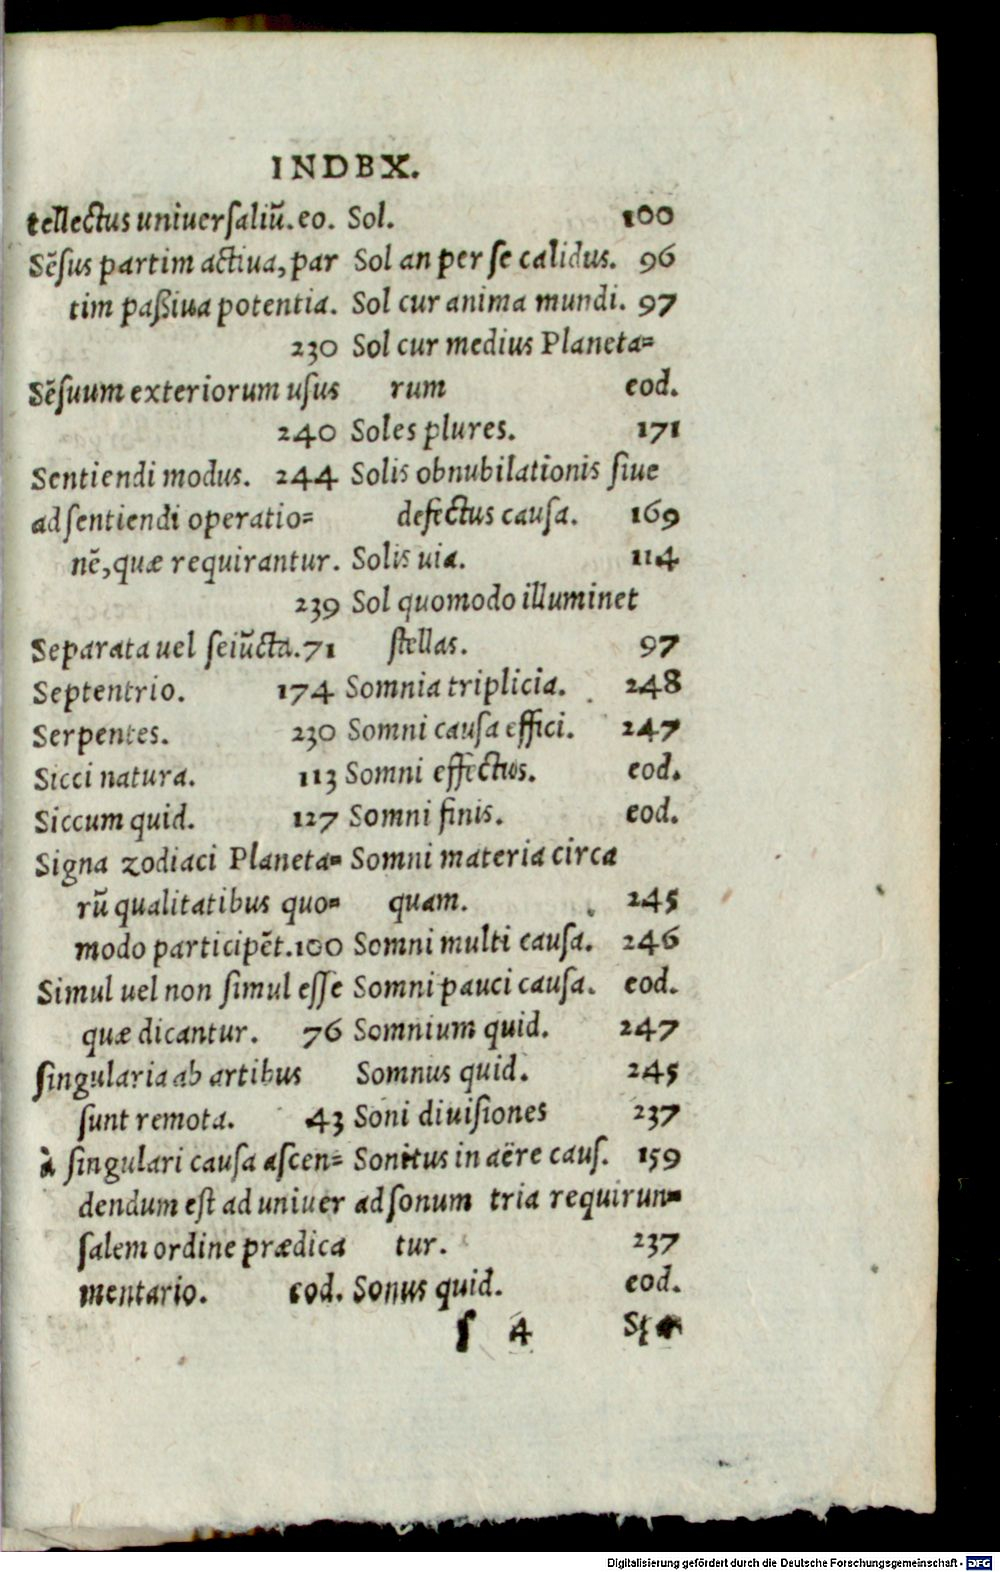 INDEX.
tellectus uniuersaliū. eo.
Sēsus partim actiua, par
tim paßiua potentia.
230
Sēsuum exteriorum usus
240
Sentiendi modus. 244
ad sentiendi operatio=
nē, quæ requirantur.
239
Separata uel seiūcta. 71
Septentrio. 174
Serpentes. 230
Sicci natura. 113
Siccum quid. 127
Signa zodiaci Planeta=
rū qualitatibus quo=
modo participēt. 100
Simul uel non simul esse
quæ dicantur. 76
singularia ab artibus
sunt remota. 43
à singulari causa ascen=
dendum est ad uniuer
salem ordine prædica
mentario. eod.
Sol. 100
Sol an per se calidus. 96
Sol cur anima mundi. 97
Sol cur medius Planeta=
rum eod.
Soles plures. 171
Solis obnubilationis siue
defectus causa. 169
Solis uia. 114
Sol quomodo illuminet
stellas. 97
Somnia triplicia. 248
Somni causa effici. 247
Somni effectus. eod.
Somni finis. eod.
Somni materia circa
quam. 245
Somni multi causa. 246
Somni pauci causa. eod.
Somnium quid. 247
Somnus quid. 245
Soni diuisiones 237
Sonitus in aëre caus. 159
ad sonum tria requirun=
tur. 237
Sonus quid. eod.
s 4
Digitalisierung gefördert durch die Deutsche Forschungsgemeinschaft - DFG